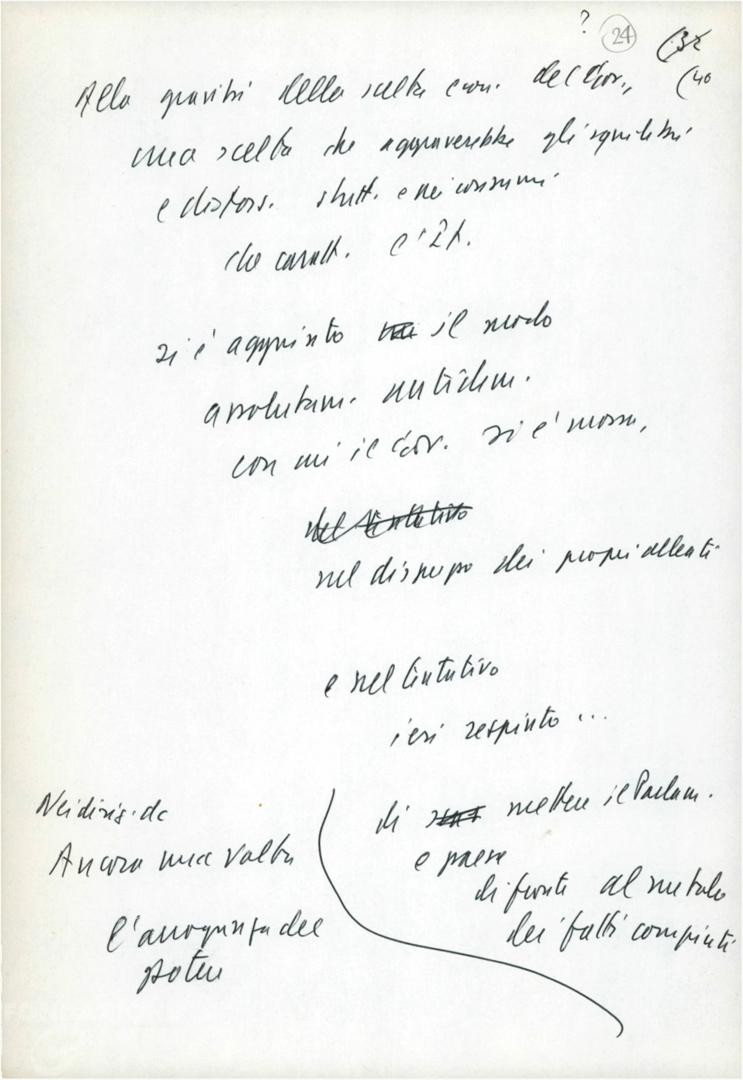 ? 24 (32
(40
Alla gravità della scelta econ. del Gov.,
una scelta che aggraverebbe gli squilibri
e distors. strutt. e nei consumi
che caratt. l'It.
si è aggiunto il modo
assolutam. antidem.
con cui il Gov. si è mosso,
nel tentativo
nel disprezzo dei propri alleati
e nel tentativo
ieri respinto ...
di mettere il Parlam.
e paese
di fronte al metodo
dei fatti compiuti
Nei dirig. dc
Ancora una volta
l'arroganza del
potere